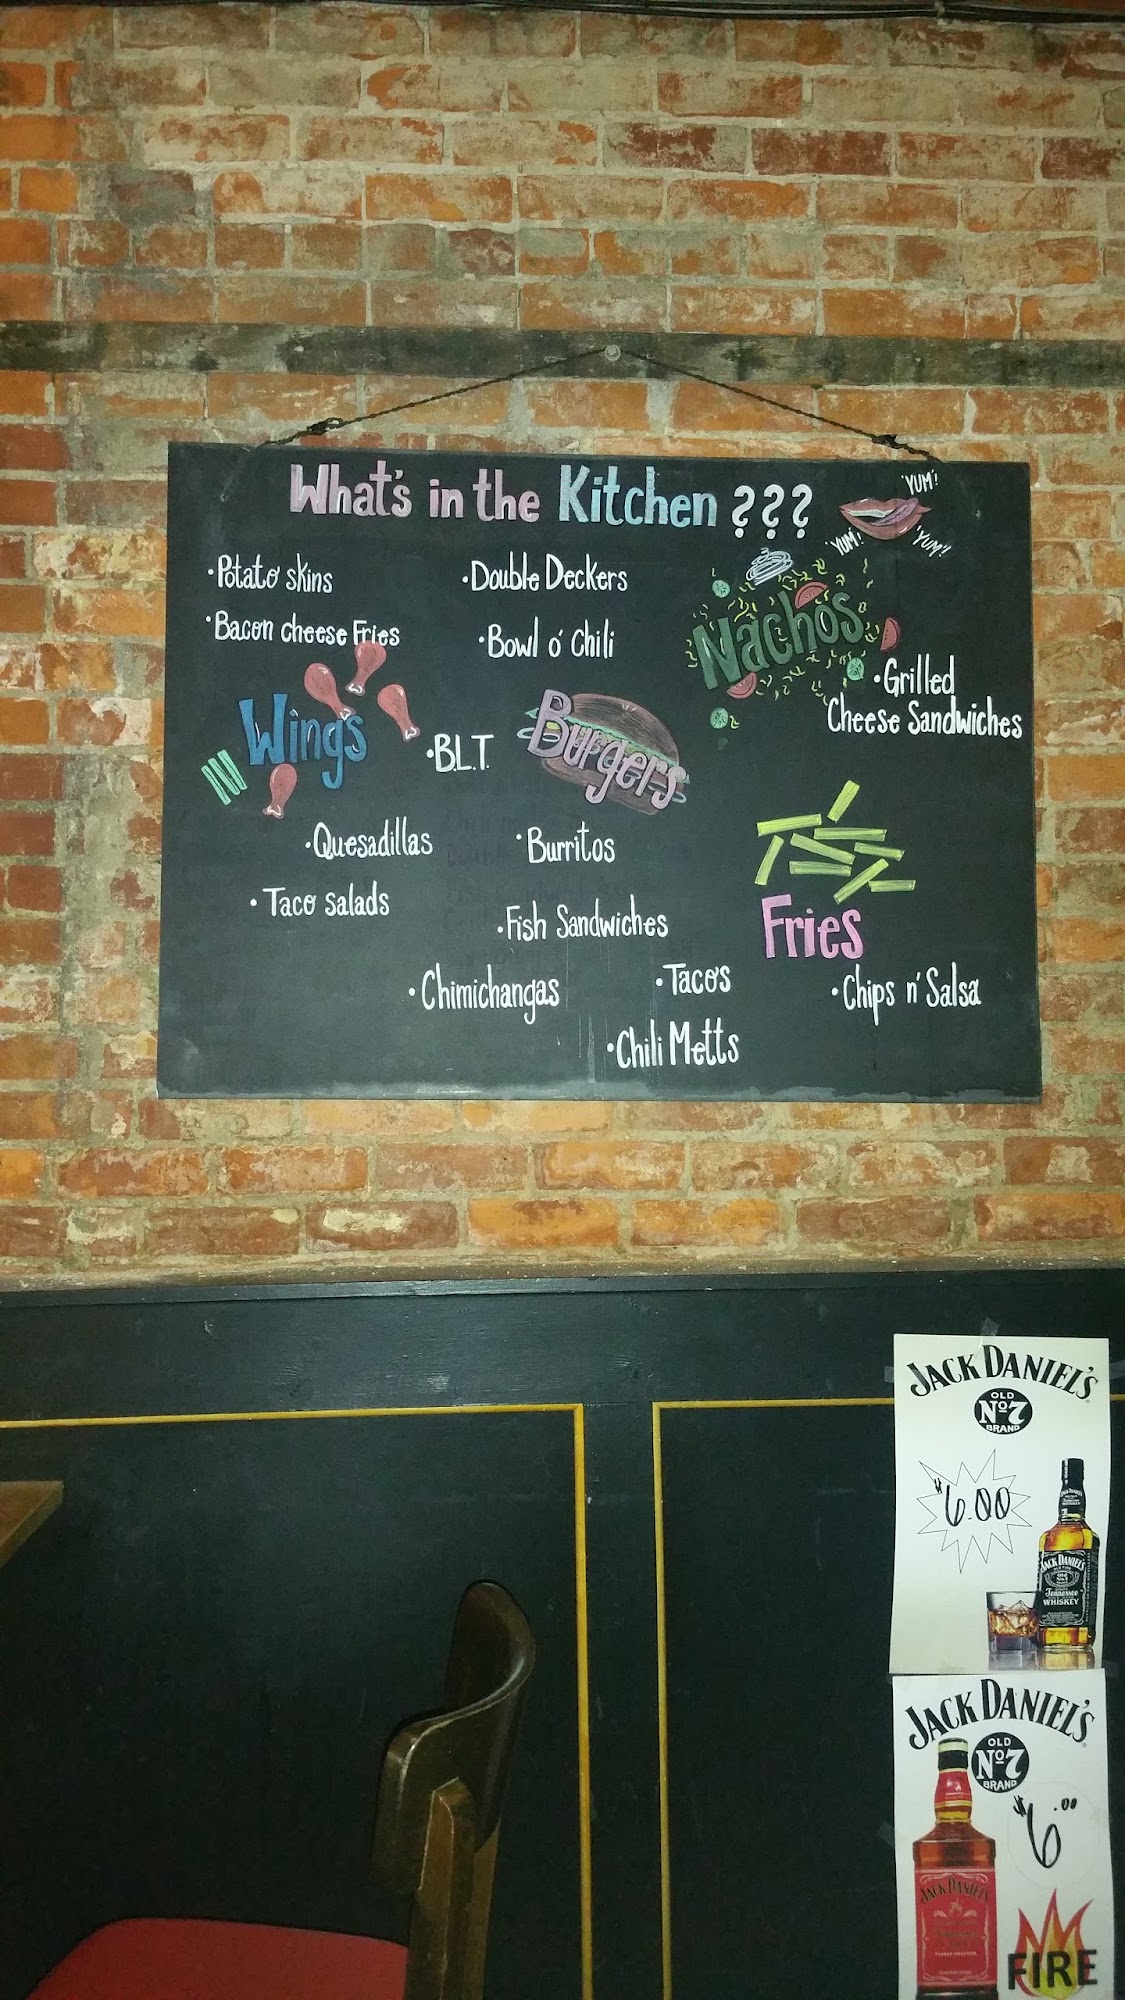 What's in the Kitchen ???
'YUM'!
'YUM'!
'YUM'!
• Potato skins
• Double Deckers
• Bacon cheese Fries
• Bowl o' Chili
Nachos
• Grilled
Cheese Sandwiches
Wings
• B.L.T.
Burgers
• Quesadillas
• Burritos
Fries
• Taco salads
• Fish Sandwiches
• Chimichangas
• Tacos
• Chips n' Salsa
• Chili Metts
JACK DANIEL'S
OLD
Nº7
BRAND
$6.00
JACK DANIEL'S
Tennessee
WHISKEY
JACK DANIEL'S
OLD
Nº7
BRAND
$6.00
JACK DANIEL'S
FIRE